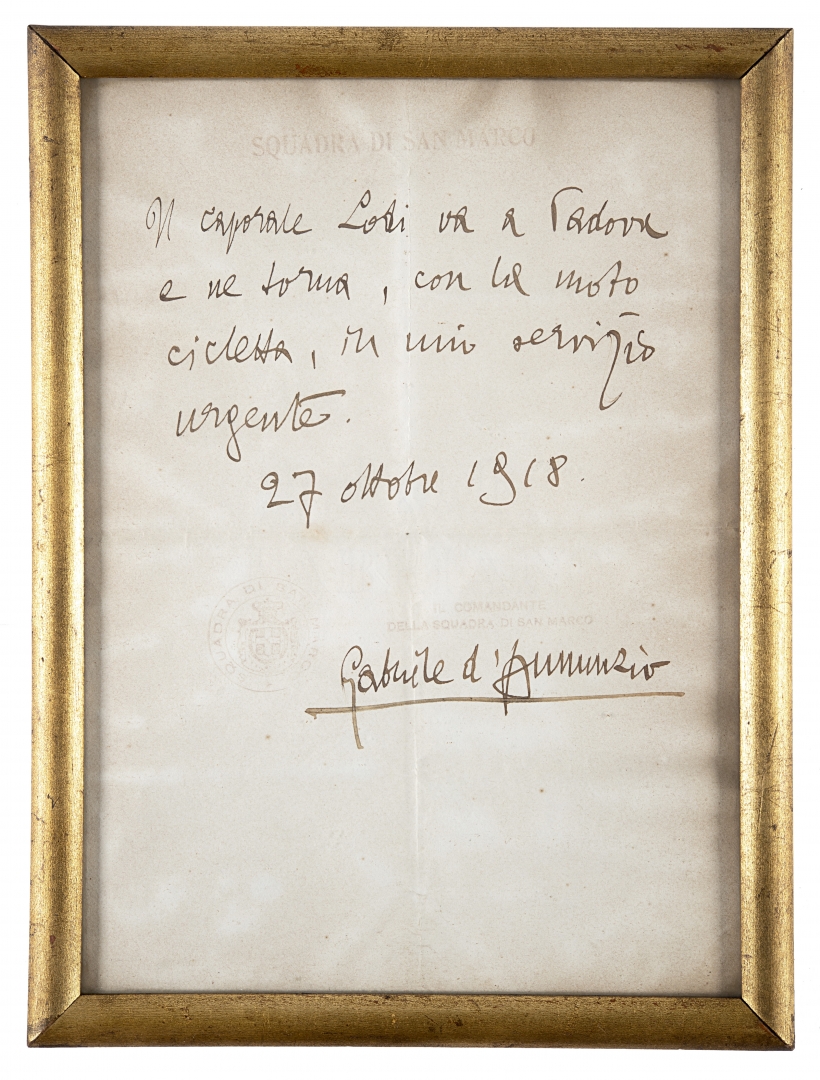 SQUADRA DI SAN MARCO
Il caporale Lodi va a Padova
e ne torna, con la moto
cicletta, in mio servizio
urgente.
27 ottobre 1918.
SQUADRA DI SAN MARCO
IL COMANDANTE
DELLA SQUADRA DI SAN MARCO
Gabriele d'Annunzio